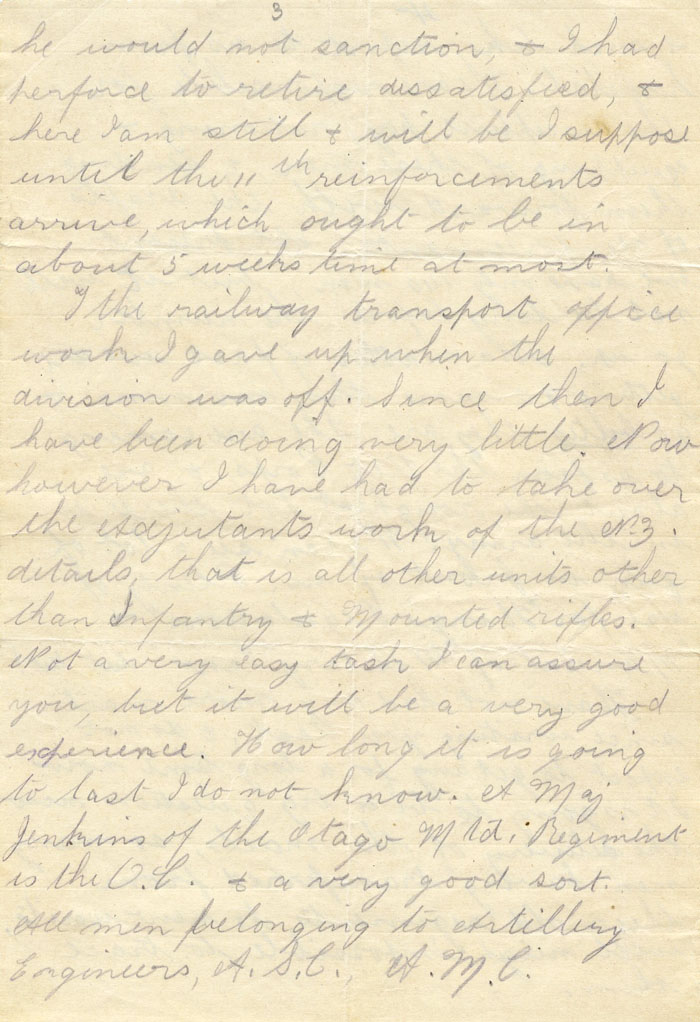 3
he would not sanction, & I had
perforce to retire dissatisfied, &
here I am still & will be I suppose
until the 11th reinforcements
arrive, which ought to be in
about 5 weeks time at most.
I the railway transport office
work I gave up when the
division was off. Since then I
have been doing very little. Now
however I have had to take over
the Adjutants work of the N.Z.
details, that is all other units other
than Infantry & Mounted rifles.
Not a very easy task I can assure
you, but it will be a very good
experience. How long it is going
to last I do not know. A Maj
Jenkins of the Otago Mtd. Regiment
is the O.C. & a very good sort.
All men belonging to Artillery
Engineers, A.S.C., A.M.C.